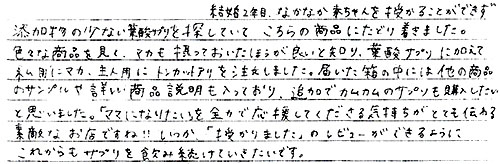 結婚2年目、なかなか赤ちゃんを授かることができず
添加物の少ない葉酸サプリを探していて こちらの商品にたどり着きました。
色々な商品を見て、マカも摂っておいたほうが良いと知り、葉酸サプリに加えて
私用にマカ、主人用にトンカットアリを注文しました。届いた箱の中には他の商品
のサンプルや詳しい商品説明も入っており、追加でカムカムのサプリも購入したい
と思いました。「ママになりたい」を全力で応援してくださる気持ちがとても伝わる
素敵なお店ですね!! いつか、「授かりました」のレビューができるように
これからもサプリを飲み続けていきたいです。